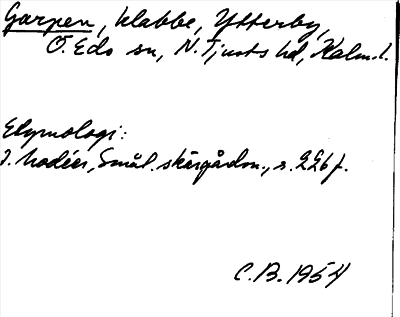 Garpen, klabbe, Ytterby,
Ö. Eds sn, N. Tjusts hd, Kalm. l.
Etymologi:
I. Modéer, Smål. skärgårdsn., s. 226 f.
C.B. 1954